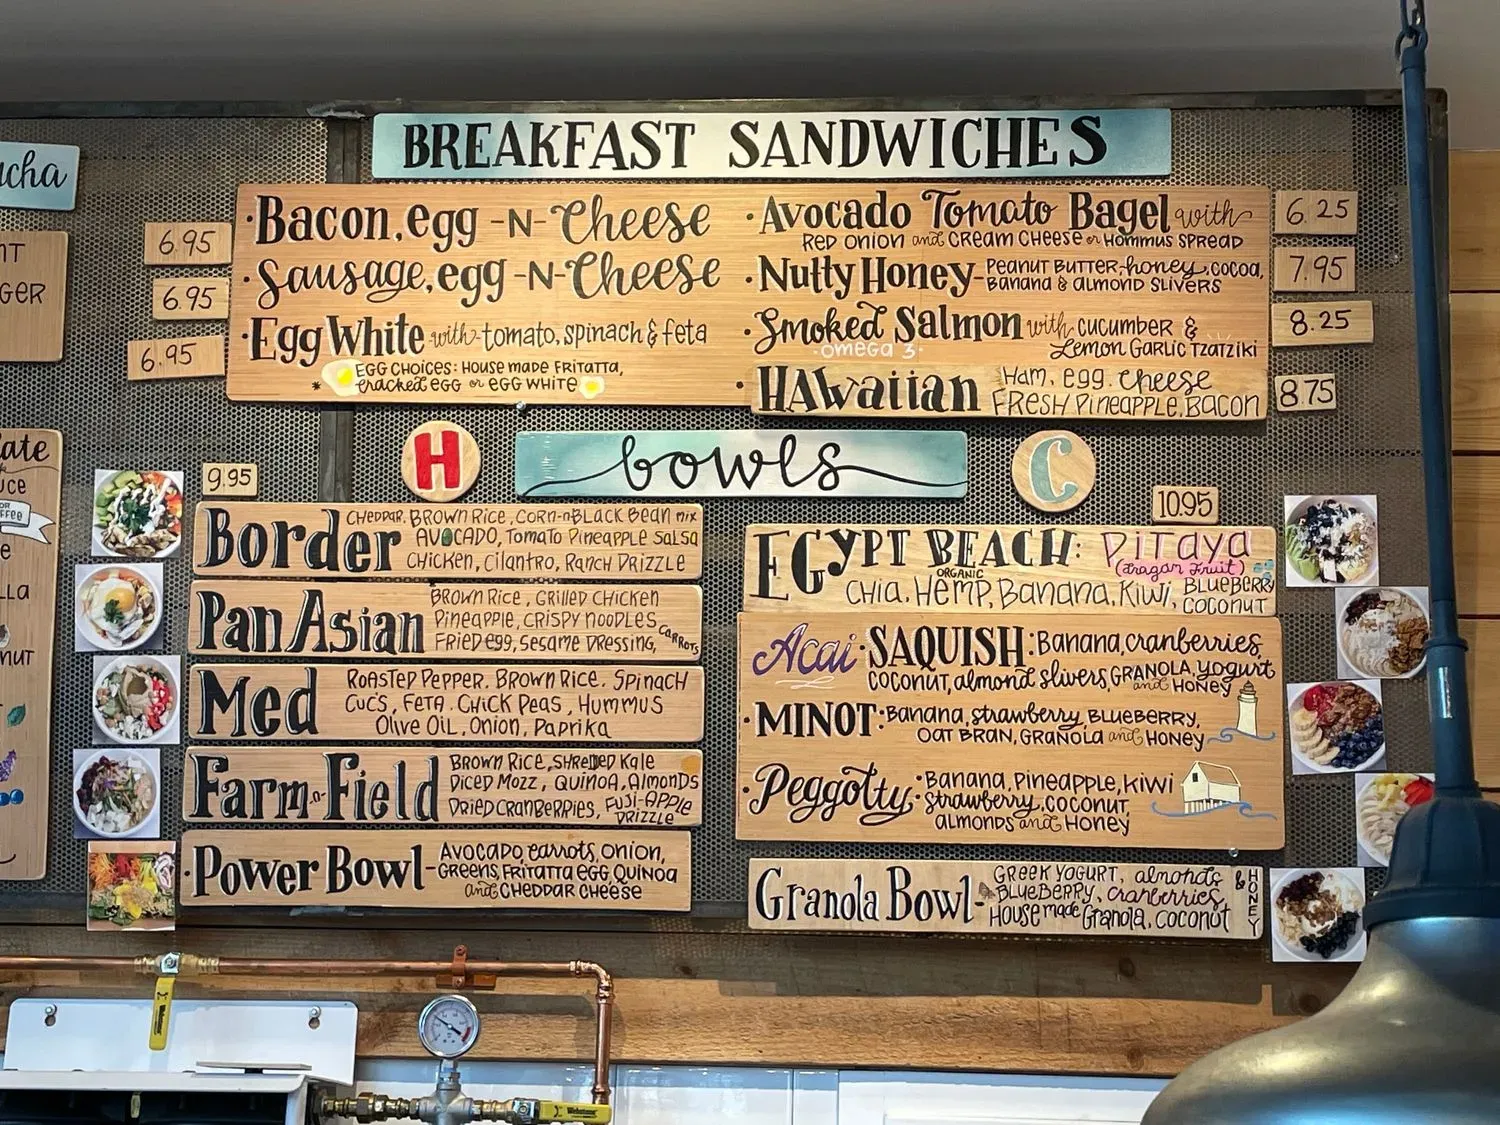 BREAKFAST SANDWICHES
6.95
• Bacon, egg -N- Cheese
6.95
• Sausage, egg -N- Cheese
6.95
• Egg White with tomato, spinach & feta
* EGG CHOICES: HOUSE MADE FRITATTA,
cracked EGG or EGG WHITE
• Avocado Tomato Bagel with
RED ONION and CREAM CHEESE or HOMMUS SPREAD
6.25
• Nutty Honey - PEANUT BUTTER, honey, cocoa,
BANANA & ALMOND SLIVERS
7.95
• Smoked Salmon with CUCUMBER &
OMEGA 3 • Lemon GARLIC TZATZIKI
8.25
• HAWaiian HAM, egg, cheese
FRESH PINEAPPLE, BACON
8.75
H
bowls
C
9.95
Border CHEDDAR, BROWN RICE, CORN-n-BLACK BEAN mix
AVOCADO, TOMATO PINEAPPLE SALSA
CHICKEN, CILANTRO, RANCH DRIZZLE
Pan Asian BROWN RICE, GRILLED CHICKEN
PINEAPPLE, CRISPY NOODLES
FRIED EGG, SESAME DRESSING, CARROTS
Med ROASTED PEPPER, BROWN RICE, SPINACH
CUC'S, FETA, CHICK PEAS, HUMMUS
OLIVE OIL, ONION, PAPRIKA
Farm-n-Field BROWN RICE, SHREDDED KALE
DICED MOZZ, QUINOA, ALMONDS
DRIED CRANBERRIES, FUJI-APPLE
DRIZZLE
• Power Bowl - AVOCADO, carrots, ONION,
GREENS, FRITATTA EGG, QUINOA
and CHEDDAR CHEESE
10.95
EGYPT BEACH: PITAYA
(Dragon Fruit)
ORGANIC
CHIA, HEMP, BANANA, KIWI, BLUEBERRY
COCONUT
Acai • SAQUISH: BANANA, cranberries,
COCONUT, almond slivers, GRANOLA, yogurt
and HONEY
• MINOT: BANANA, strawberry, BLUEBERRY,
OAT BRAN, GRANOLA and HONEY
• Peggotty: BANANA, PINEAPPLE, KIWI
strawberry, COCONUT,
ALMONDS and HONEY
Granola Bowl - GREEK YOGURT, almonds
BLUEBERRY, cranberries,
HOUSE made GRANOLA, COCONUT
& HONEY
Webstone